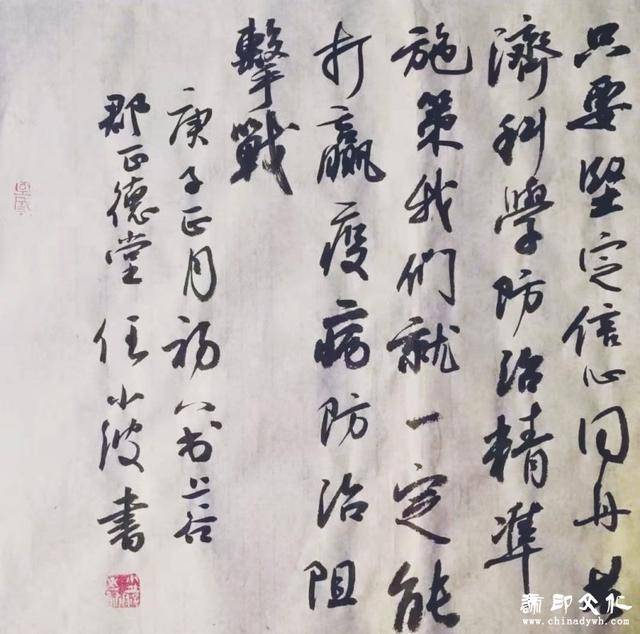 只要堅定信心同舟共
濟科學防治精準
施策我們就一定能
打贏疫病防治阻
擊戰
庚子正月初八書上谷
郡正德堂 任小波書
印文化
www.chinadywh.com